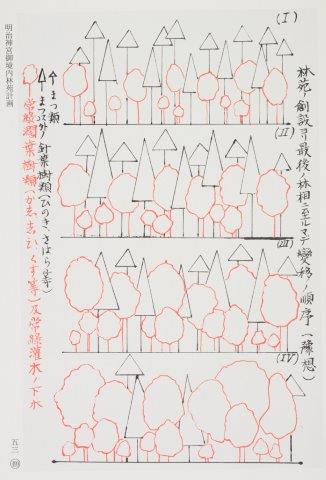 林苑ノ創設ヨリ最後ノ林相ニ至ルマデ変移ノ順序（豫想）
(I)
(II)
(III)
(IV)
まつ類
まつ以外ノ針葉樹類（ひのき、さはら等）
常緑濶葉樹類（かし、しひ、くす等）及常緑灌木ノ下木
明治神宮御境内林苑計画
五三